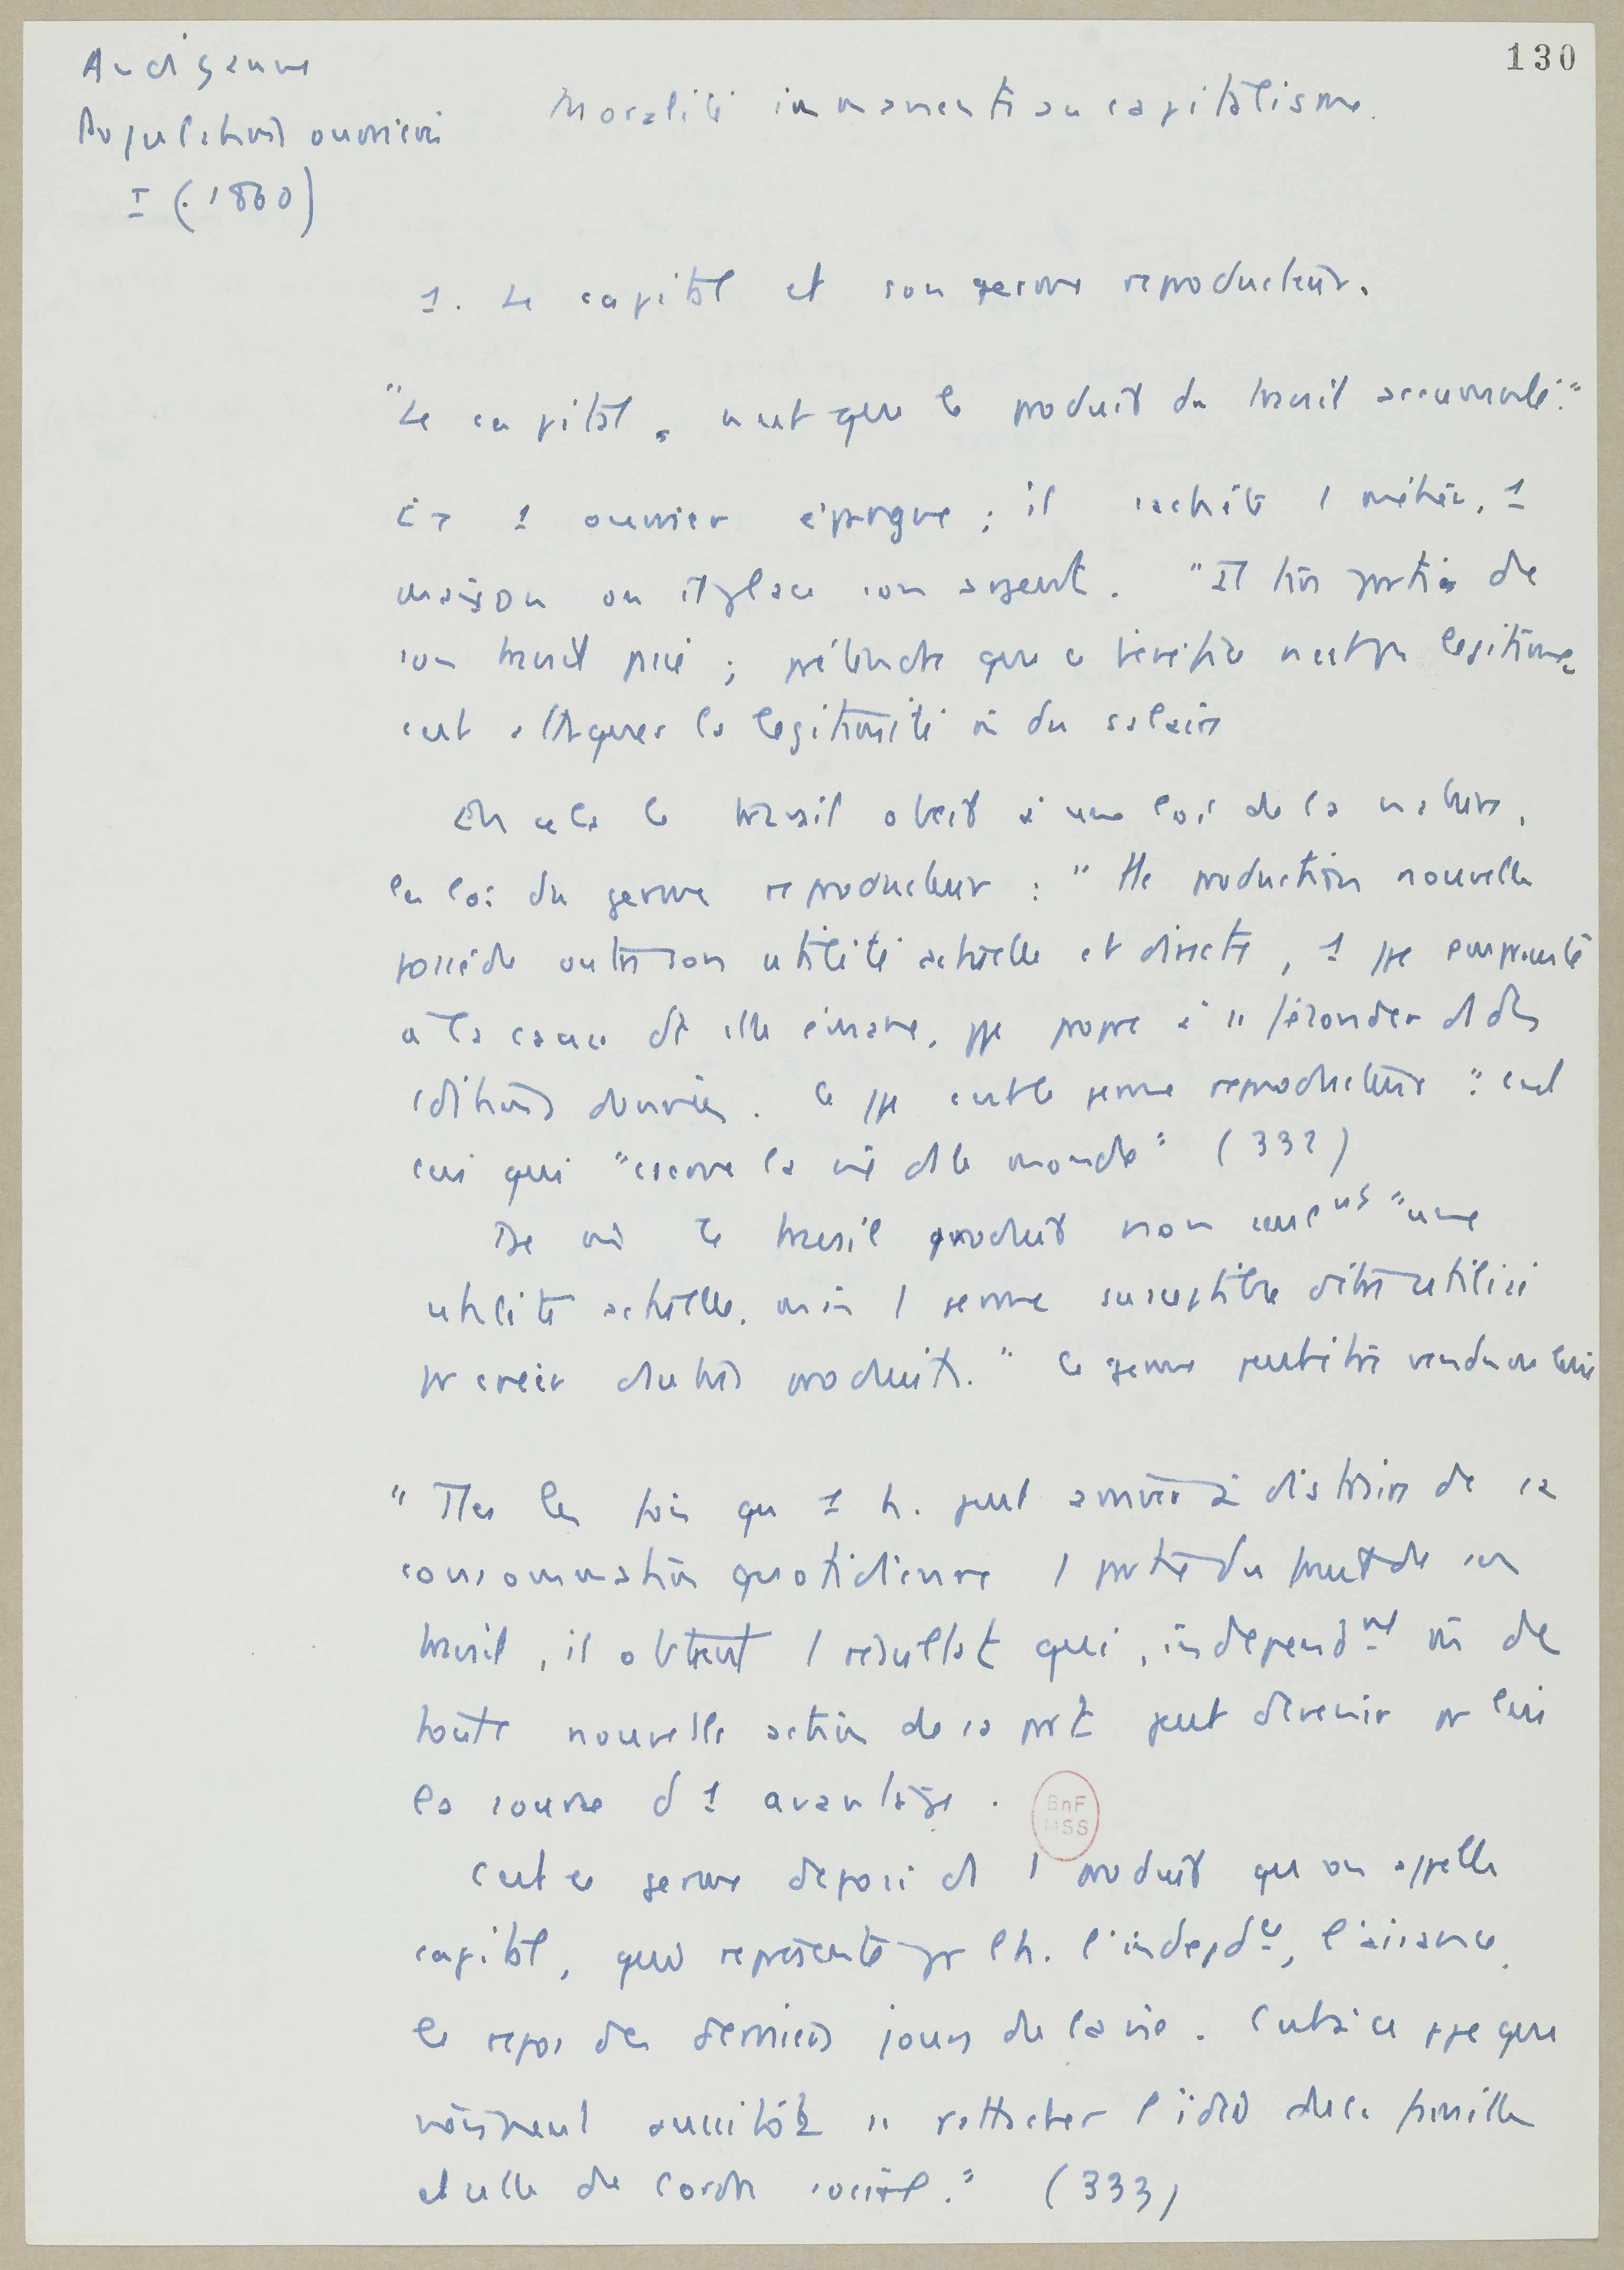 130
Audiganne
Populations ouvrières
I (1860)
Moralité immanente au capitalisme.
1. Le capital et son germe reproducteur.
"Le capital, n'est que le produit du travail accumulé."
1 ouvrier épargne ; il achète 1 métier, 1
maison ou il place son argent. "Il tire partie de
son travail passé ; prétendre que ce bénéfice n'est pas légitime,
c'est attaquer la légitimité m̂ du salaire
En cela le travail obéit à une loi de la nature,
la loi du germe reproducteur : "Tte production nouvelle
possède outre son utilité actuelle et directe, 1 ppe emprunté
à la cause dt elle émane, ppe propre à se féconder ds des
cditions données. Ce ppe c'est le germe reproducteur" : c'est
lui qui "conserve la vie ds le monde" (332)
De m̂ le travail produit non seulnt "une
utilité actuelle, mais 1 germe susceptible d'être utilisé
pr créer d'autres produits." Ce germe peut être vendu ou
"Ttes les fois qu 1 h. peut arriver à distraire de sa
consommation quotidienne 1 partie du fruit de son
travail, il obtient 1 résultat qui, indépendnt m̂ de
toute nouvelle action de sa part peut devenir pr lui
la source d'1 avantage.
BnF
MSS
C'est ce germe déposé ds 1 produit qu'on appelle
capital, qui représente pr l'h. l'indépdce, l'aisance,
le repos des derniers jours de la vie. C'est à ce ppe que
viennent aussitôt se rattacher l'idée de la famille
et celle de l'ordre social." (333)